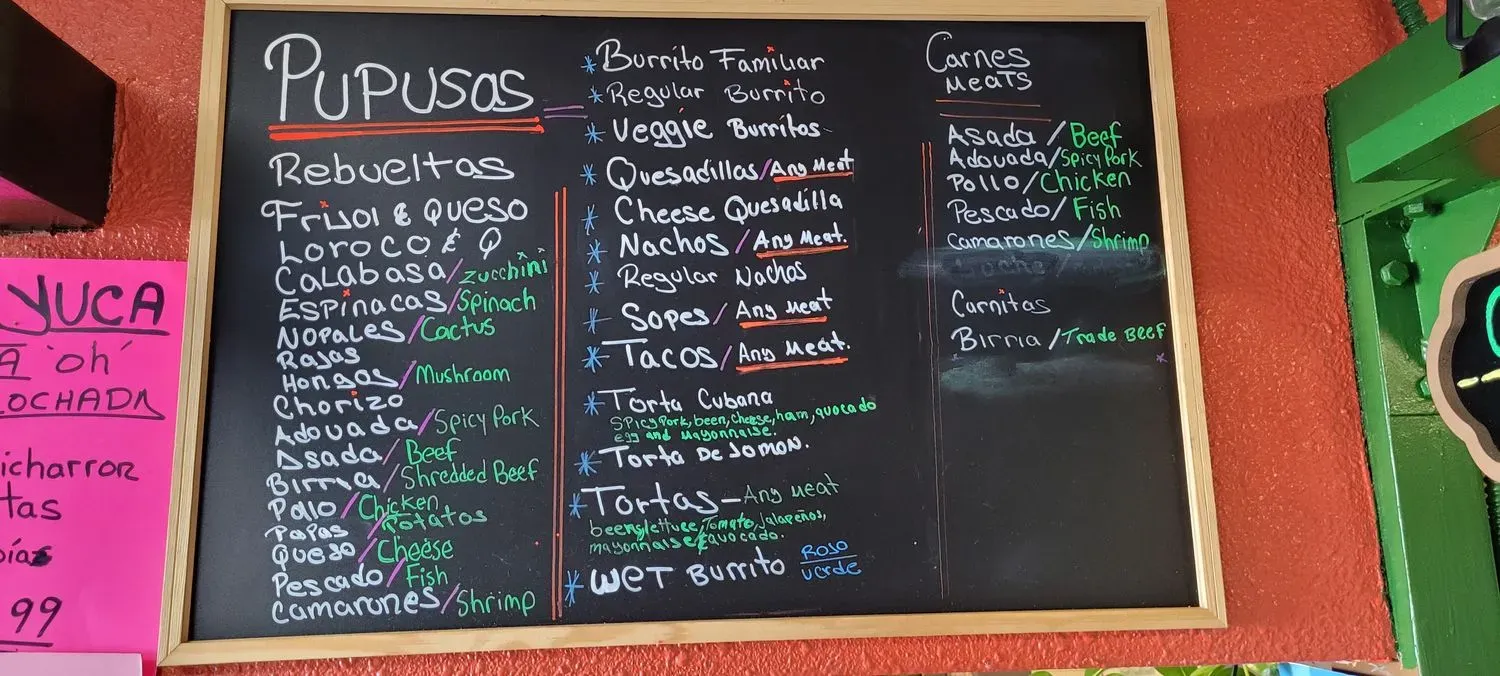 PUPUSAS
Rebueltas
Frijol & Queso
Loroco & Q
Calabasa/Zucchini
Espinacas/Spinach
Nopales/Cactus
Rajas
Hongos/Mushroom
Chorizo
Adovada/Spicy Pork
Asada/Beef
Birria/Shredded Beef
Pollo/Chicken
Papas/Potatos
Queso/Cheese
Pescado/Fish
Camarones/Shrimp
* Burrito Familiar
* Regular Burrito
* Veggie Burritos
* Quesadillas/Any Meat
* Cheese Quesadilla
* Nachos/Any Meat.
* Regular Nachos
* Sopes/Any Meat
* Tacos/Any Meat.
* Torta Cubana
Spicy Pork, been, cheese, ham, avocado
egg and mayonnaise.
* Torta De Jomon.
* Tortas-Any Meat
beens, lettuce, Tomato, jalapeños,
mayonnaise & avocado.
* Wet Burrito Rojo
verde
Carnes
Meats
Asada/Beef
Adovada/Spicy Pork
Pollo/Chicken
Pescado/Fish
Camarones/Shrimp
Carnitas
Birria/Trade Beef
YUCA
A 'oh'
OCHADA
icharron
tas
99